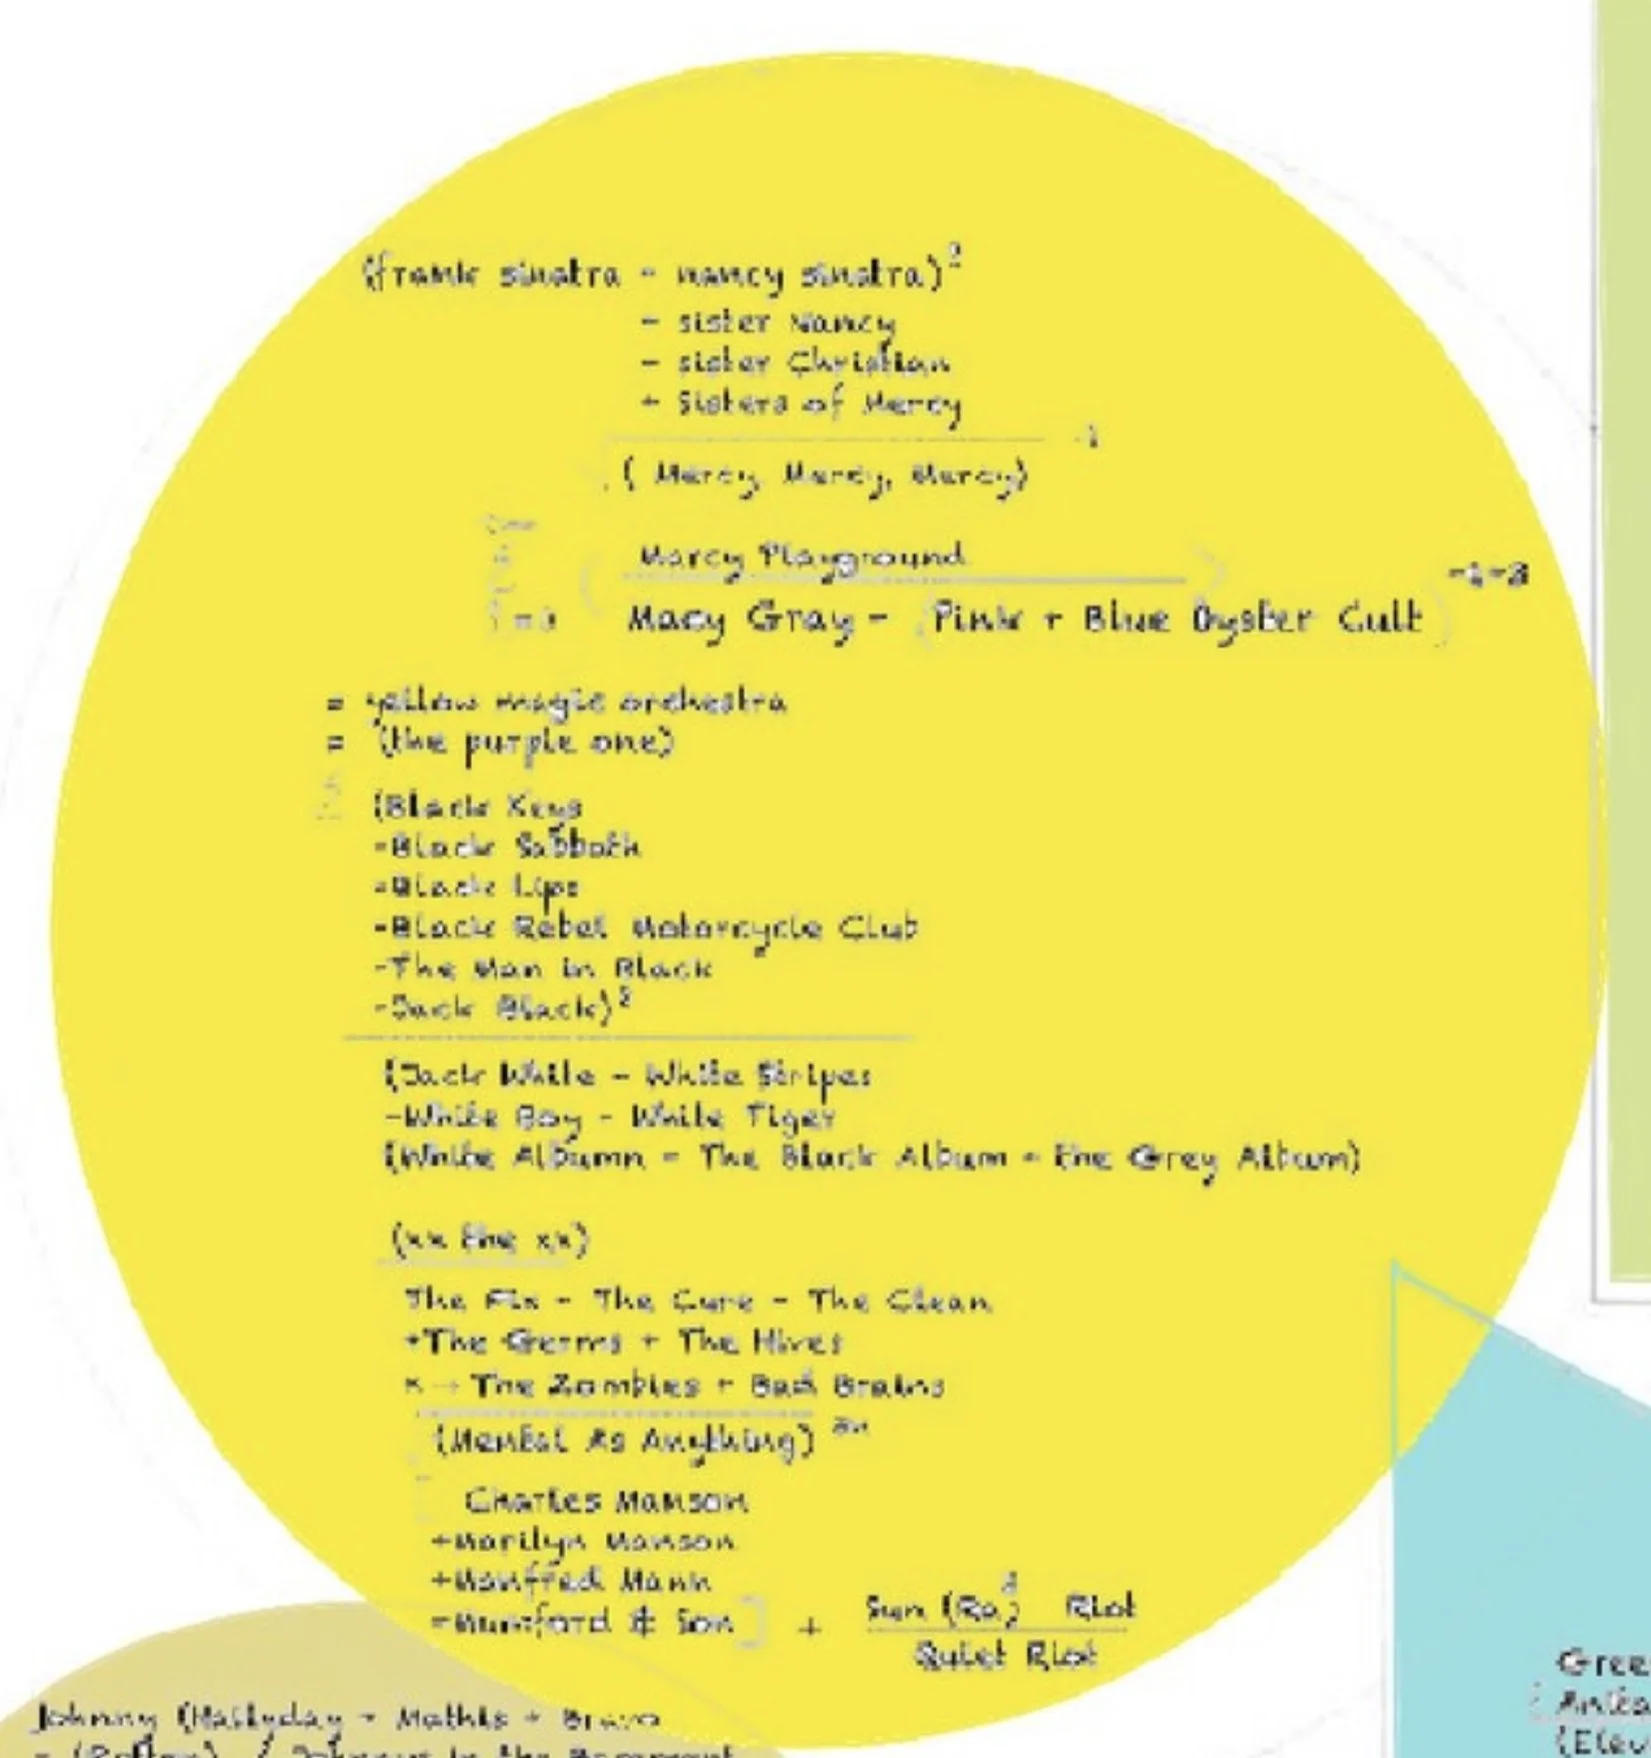 (frank sinatra - nancy sinatra)²
- sister Nancy
- sister Christian
+ Sisters of Mercy
( Mercy, Mercy, Mercy)
Marcy Playground
Macy Gray - (Pink + Blue Öyster Cult)
= yellow magic orchestra
= (the purple one)
(Black Keys
-Black Sabbath
-Black Lips
-Black Rebel Motorcycle Club
-The Man in Black
-Jack Black)²
(Jack White - White Stripes
-White Boy - White Tiger
(White Albumn - The Black Album - the Grey Album)
(xx the xx)
The Fix - The Cure - The Clean
+The Germs + The Hives
x → The Zombies + Bad Brains
(Mental As Anything)
[ Charles Manson
+Marilyn Manson
+Manfred Mann
-Mumford & Son] + Sun (Ra) Riot
Quiet Riot
Johnny (Hallyday - Mathis + Bravo
Gree
(Elev